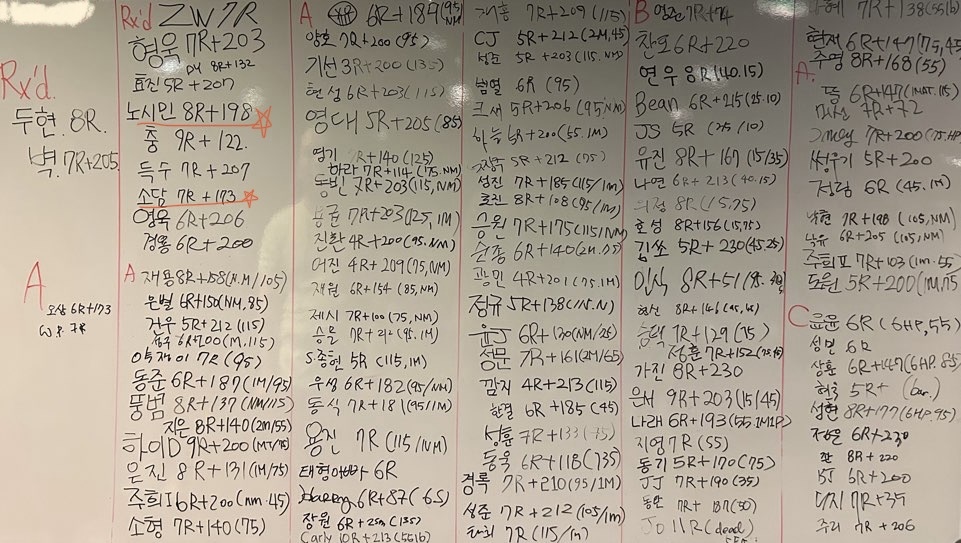 Rx'd.
두현. 8R.
벽. 7R+205
A
오상 6R+173
Rx'd ZW 7R
형욱 7R+203
8R+132
효진 5R+207
노시인 8R+198
중 9R+122.
득수 7R+207
소담 7R+173
영욱 6R+206
경용 6R+200
A 재용 8R+158(H.M/105)
은별 6R+150(NM,85)
건우 5R+212(115)
6R+200(M.115)
7R(95)
동준 6R+187(1M/95)
뚱범 8R+137(NM/115)
지우 8R+140(2M/55)
하이D 9R+200(M7/75)
은진 8R+131(M/75)
주희I 6R+200(nm.45)
소형 7R+140(75)
A 6R+184(95/NM)
양호 7R+200(95)
기선 3R+200(135)
현성 6R+203(115)
영대 5R+205(85)
영기 R+140(125)
하라 7R+114(75.NM)
동빈 7R+203(115,NM)
용균 7R+203(125,1M)
진환 4R+200(95.NM)
여진 4R+209(75,NM)
재원 6R+154(85,NM)
제시 7R+100(75,NM)
승물 7R+212(95.1M)
S.종현 5R(115,1M)
우성 6R+182(95/NM)
동식 7R+181(95/1M)
용진 7R(115/NM)
태형아빠 6R
6R+87(65)
장원 6R+25m(135)
Carly 10R+213(55lb)
7R+209(115)
CJ 5R+212(2M,45)
5R+203(115.NM)
범열 6R(95)
크세 5R+206(95,NM)
하늘 6R+200(55.1M)
5R+212(75)
성진 7R+185(115/1M)
효진 8R+108(95/1M)
승원 7R+175(115/NM)
순종 6R+140(2M.75)
광민 4R+201(75.1M)
정규 5R+138(1M.N)
윤J 6R+130(NM/25)
성문 7R+161(2M/65)
깜지 4R+213(115)
한결 6R+185(45)
성훈 7R+133(75)
동욱 6R+118(735)
경록 7R+210(95/1M)
성준 7R+212(105/1m)
7R(115/1m)
B 영준 7R+74
찬포 6R+220
연우 8R(40.15)
Bean 6R+215(25.10)
JS 5R(25/10)
유진 8R+167(15/35)
나연 6R+213(40.15)
의정 8R(15,75)
호성 8R+156(15,75)
김쏘 5R+230(45.25)
인식 8R+51
현신 8R+146
승택 7R+129(75)
성훈 7R+152
가진 8R+230
은서 9R+203(15/45)
나래 6R+193(55.1M1P)
지영 7R(55)
동기 5R+170(75)
JJ 7R+190(35)
동환 7R+187(50)
Jo 11R(dead)
7R+138(55lb)
현재 6R+147(75,45)
수영 8R+168(55)
A.
뜸 6R+147(1MAT.15)
7R+72
7R+200(75.HP)
써우기 5R+200
정림 6R(45.1M)
낙현 7R+198(105,NM)
낙유 6R+205(105,NM)
주희II 7R+103(1m.55)
도윤 5R+200(1M,75)
C 윤 6R(6HP,55)
성민 6R
상훈 6R+147(6HP.85)
혁준 5R+(bar.)
성현 8R+177(6HP.95)
6R+230
찬 8R+220
BJ 6R+200
다지 7R+35
주리 7R+206